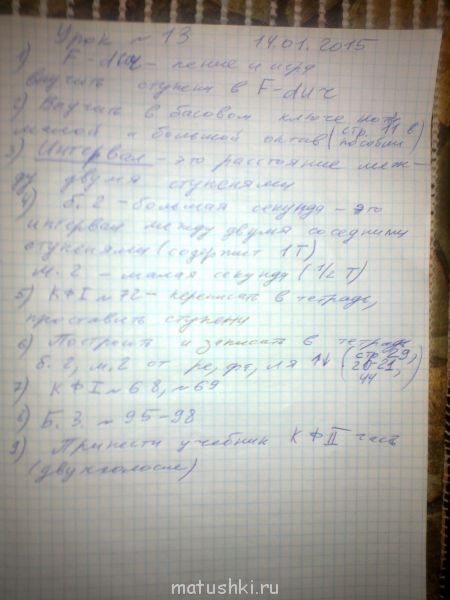 Урок № 13 14.01.2015
1) F-dur - пение и игра
выучить ступени в F-dur
2) Выучить в басовом ключе ноты
малой и большой октав (стр. 11 в пособии)
3) Интервал - это расстояние меж-
ду двумя ступенями
4) б. 2 - большая секунда - это
интервал между двумя соседними
ступенями (содержит 1Т)
м. 2 - малая секунда (1/2 Т)
5) КФI № 72 - переписать в тетрадь,
проставить ступени
6) Построить и записать в тетрадь
б. 2, м. 2 от ре, фа, ля ↑↓ (стр. 29, 20-21, 44)
7) КФI № 68, № 69
8) Б. З. № 95-98
9) Принести учебник КФII часть
(двухголосие)
matushki.ru